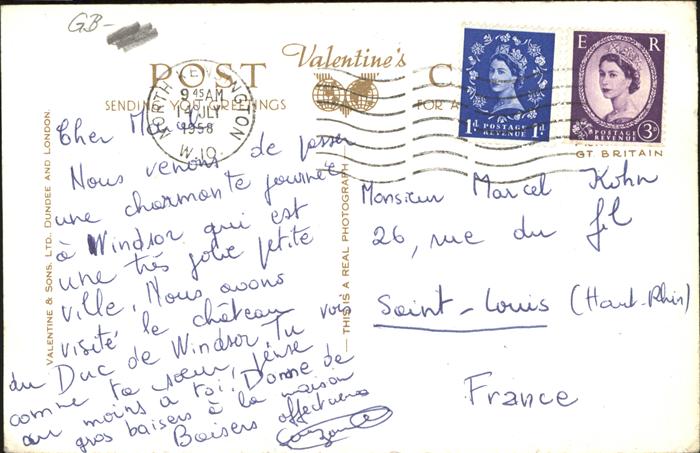 GB-
Valentine's
POST C
SENDING YOU GREETINGS FOR A
NORTH KENSINGTON
9 45 AM
14 JLY
1958
W.10
1D POSTAGE REVENUE 1D
E R
POSTAGE REVENUE 3D
GT. BRITAIN
VALENTINE & SONS. LTD. DUNDEE AND LONDON.
THIS IS A REAL PHOTOGRAPH
Cher
Nous venons de passer
une charmante journée
à Windsor qui est
une très jolie petite
ville. Nous avons
visité le château
du Duc de Windsor. Tu vois
comme ta sœur, pense
au moins à toi. Donne de
gros baisers à la maison
Baisers affectueux
Monsieur Marcel Kohn
26, rue du fil
Saint-Louis (Haut-Rhin)
France